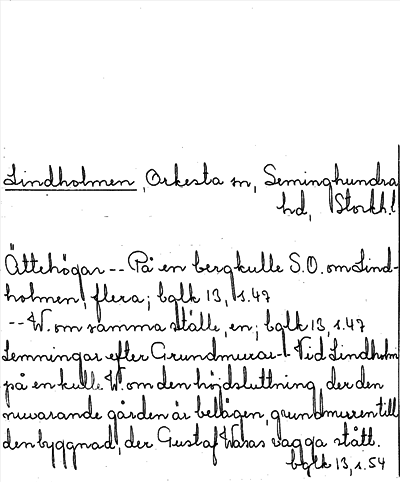 Lindholmen, Orkesta sn, Seminghundra
hd, Stockh.l
Ättehögar -- På en bergkulle S.O. om Lind-
holmen, flera; bglk 13, s.47
-- W. om samma ställe, en; bglk 13, s.47
Lemningar efter Grundmurar -- Vid Lindholm
på en kulle W. om den höjdsluttning, der den
nuvarande gården är belägen, grundmuren till
den byggnad, der Gustaf Wasas vagga stått.
bglk 13, s.54